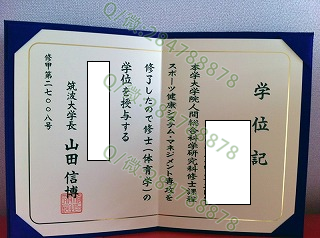 学位記
本学大学院人間総合科学研究科修士課程
スポーツ健康システム・マネジメント専攻を
修了したので修士（体育学）の
学位を授与する
筑波大学長 山田信博
修甲第二七〇〇八号
Q/微:284788878
Q/微:284788878
Q/微:284788878